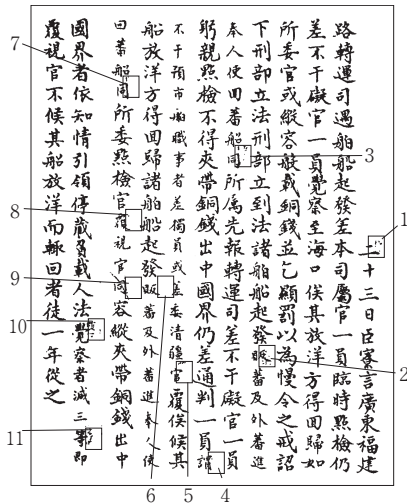 二十三日臣寮言廣東福建
路轉運司遇舶船起發差本司屬官一員臨時點檢仍
差不干礙官一員覺察至海口俟其放洋方得回歸如
所委官或縱容般載銅錢並乞顯罰以為慢令之戒詔
下刑部立法刑部立到法諸舶船起發販蕃及外蕃進
奉人使回蕃船同所屬先報轉運司差不干礙官一員
躬親點檢不得夾帶銅錢出中國界仍差通判一員謂
不干預市舶職事者差獨員或差委清彊官覆候其
船放洋方得回歸諸舶船起發販蕃及外蕃進奉人使
回蕃船同所委點檢官覆視官同容縱夾帶銅錢出中
國界者依知情引領停藏負載人法覺察者減三等即
覆視官不候其船放洋而輒回者徒一年從之
1
2
3
4
5
6
7
8
9
10
11